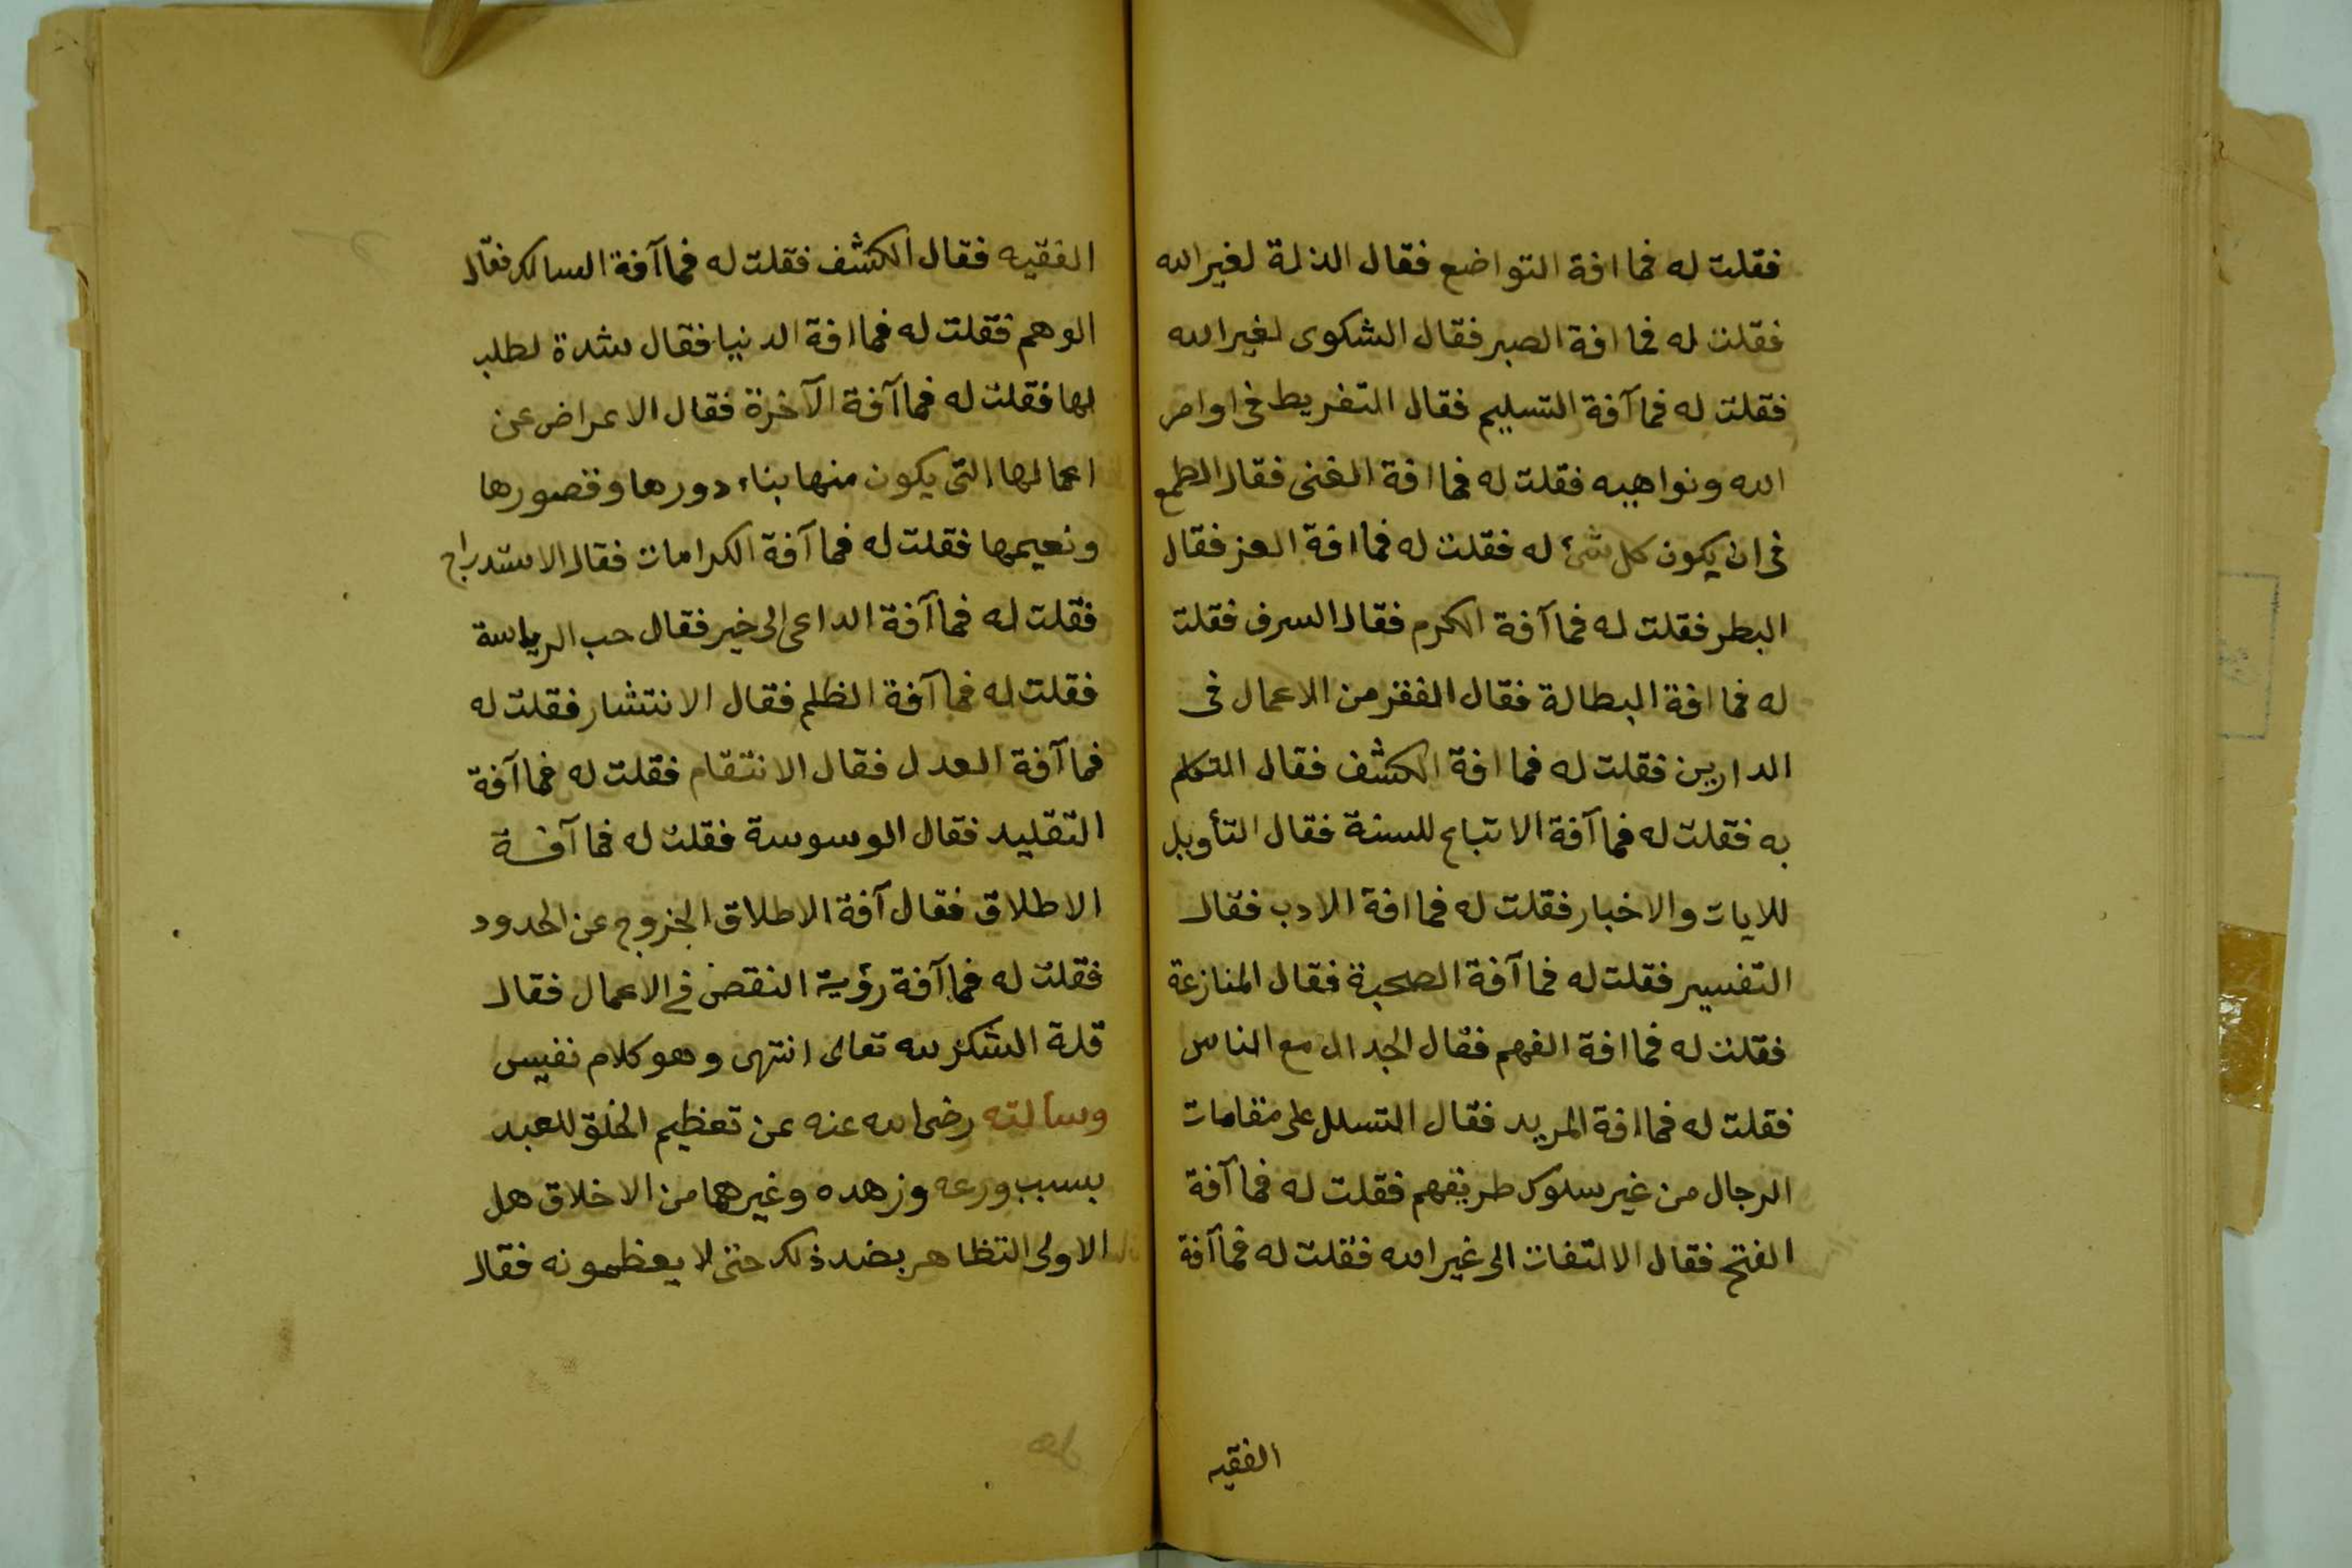 فقلت له فما افة التواضع فقال الذلة لغير الله
فقلت له فما افة الصبر فقال الشكوى لغير الله
فقلت له فما آفة التسليم فقال التفريط فى اوامر
الله ونواهيه فقلت له فما افة الغنى فقال الطمع
فى ان يكون كل شئ له فقلت له فما افة العز فقال
البطر فقلت له فما آفة الكرم فقال السرف فقلت
له فما افة البطالة فقال الفقر من الاعمال فى
الدارين فقلت له فما افة الكشف فقال التكلم
به فقلت له فما آفة الاتباع للسنة فقال التأويل
للايات والاخبار فقلت له فما افة الادب فقال
التفسير فقلت له فما آفة الصحبة فقال المنازعة
فقلت له فما افة الفهم فقال الجدال مع الناس
فقلت له فما افة المريد فقال التسلل على مقامات
الرجال من غير سلوك طريقهم فقلت له فما آفة
الفتح فقال الالتفات الى غير الله فقلت له فما آفة
الفقيه
الفقيه فقال الكشف فقلت له فما آفة السالك فقال
الوهم فقلت له فما افة الدنيا فقال شدة لطلب
لها فقلت له فما آفة الآخرة فقال الاعراض عن
اعمالها التى يكون منها بناء دورها وقصورها
ونعيمها فقلت له فما آفة الكرامات فقال الاستدراج
فقلت له فما آفة الداعى الى خير فقال حب الرياسة
فقلت له فما آفة الظلم فقال الانتشار فقلت له
فما آفة العدل فقال الانتقام فقلت له فما آفة
التقليد فقال الوسوسة فقلت له فما آفة
الاطلاق فقال آفة الاطلاق الخروج عن الحدود
فقلت له فما آفة رؤية النقص فى الاعمال فقال
قلة الشكر لله تعالى انتهى وهو كلام نفيس
وسألته رضى الله عنه عن تعظيم الخلق للعبد
بسبب ورعه وزهده وغيرهما من الاخلاق هل
الاولى التظاهر بضد ذلك حتى لا يعظمونه فقال